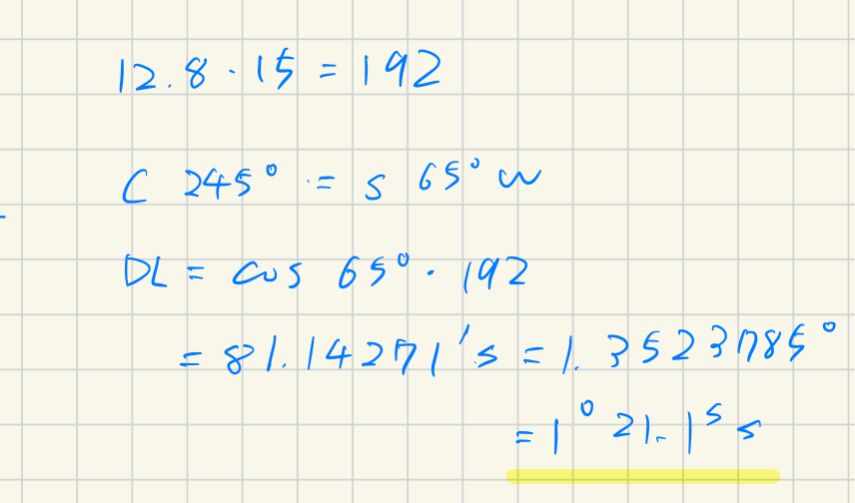 12.8 · 15 = 192
C 245° = S 65° W
DL = cos 65° · 192
= 81.14271's = 1.3523785°
= 1° 21.1ˢ s